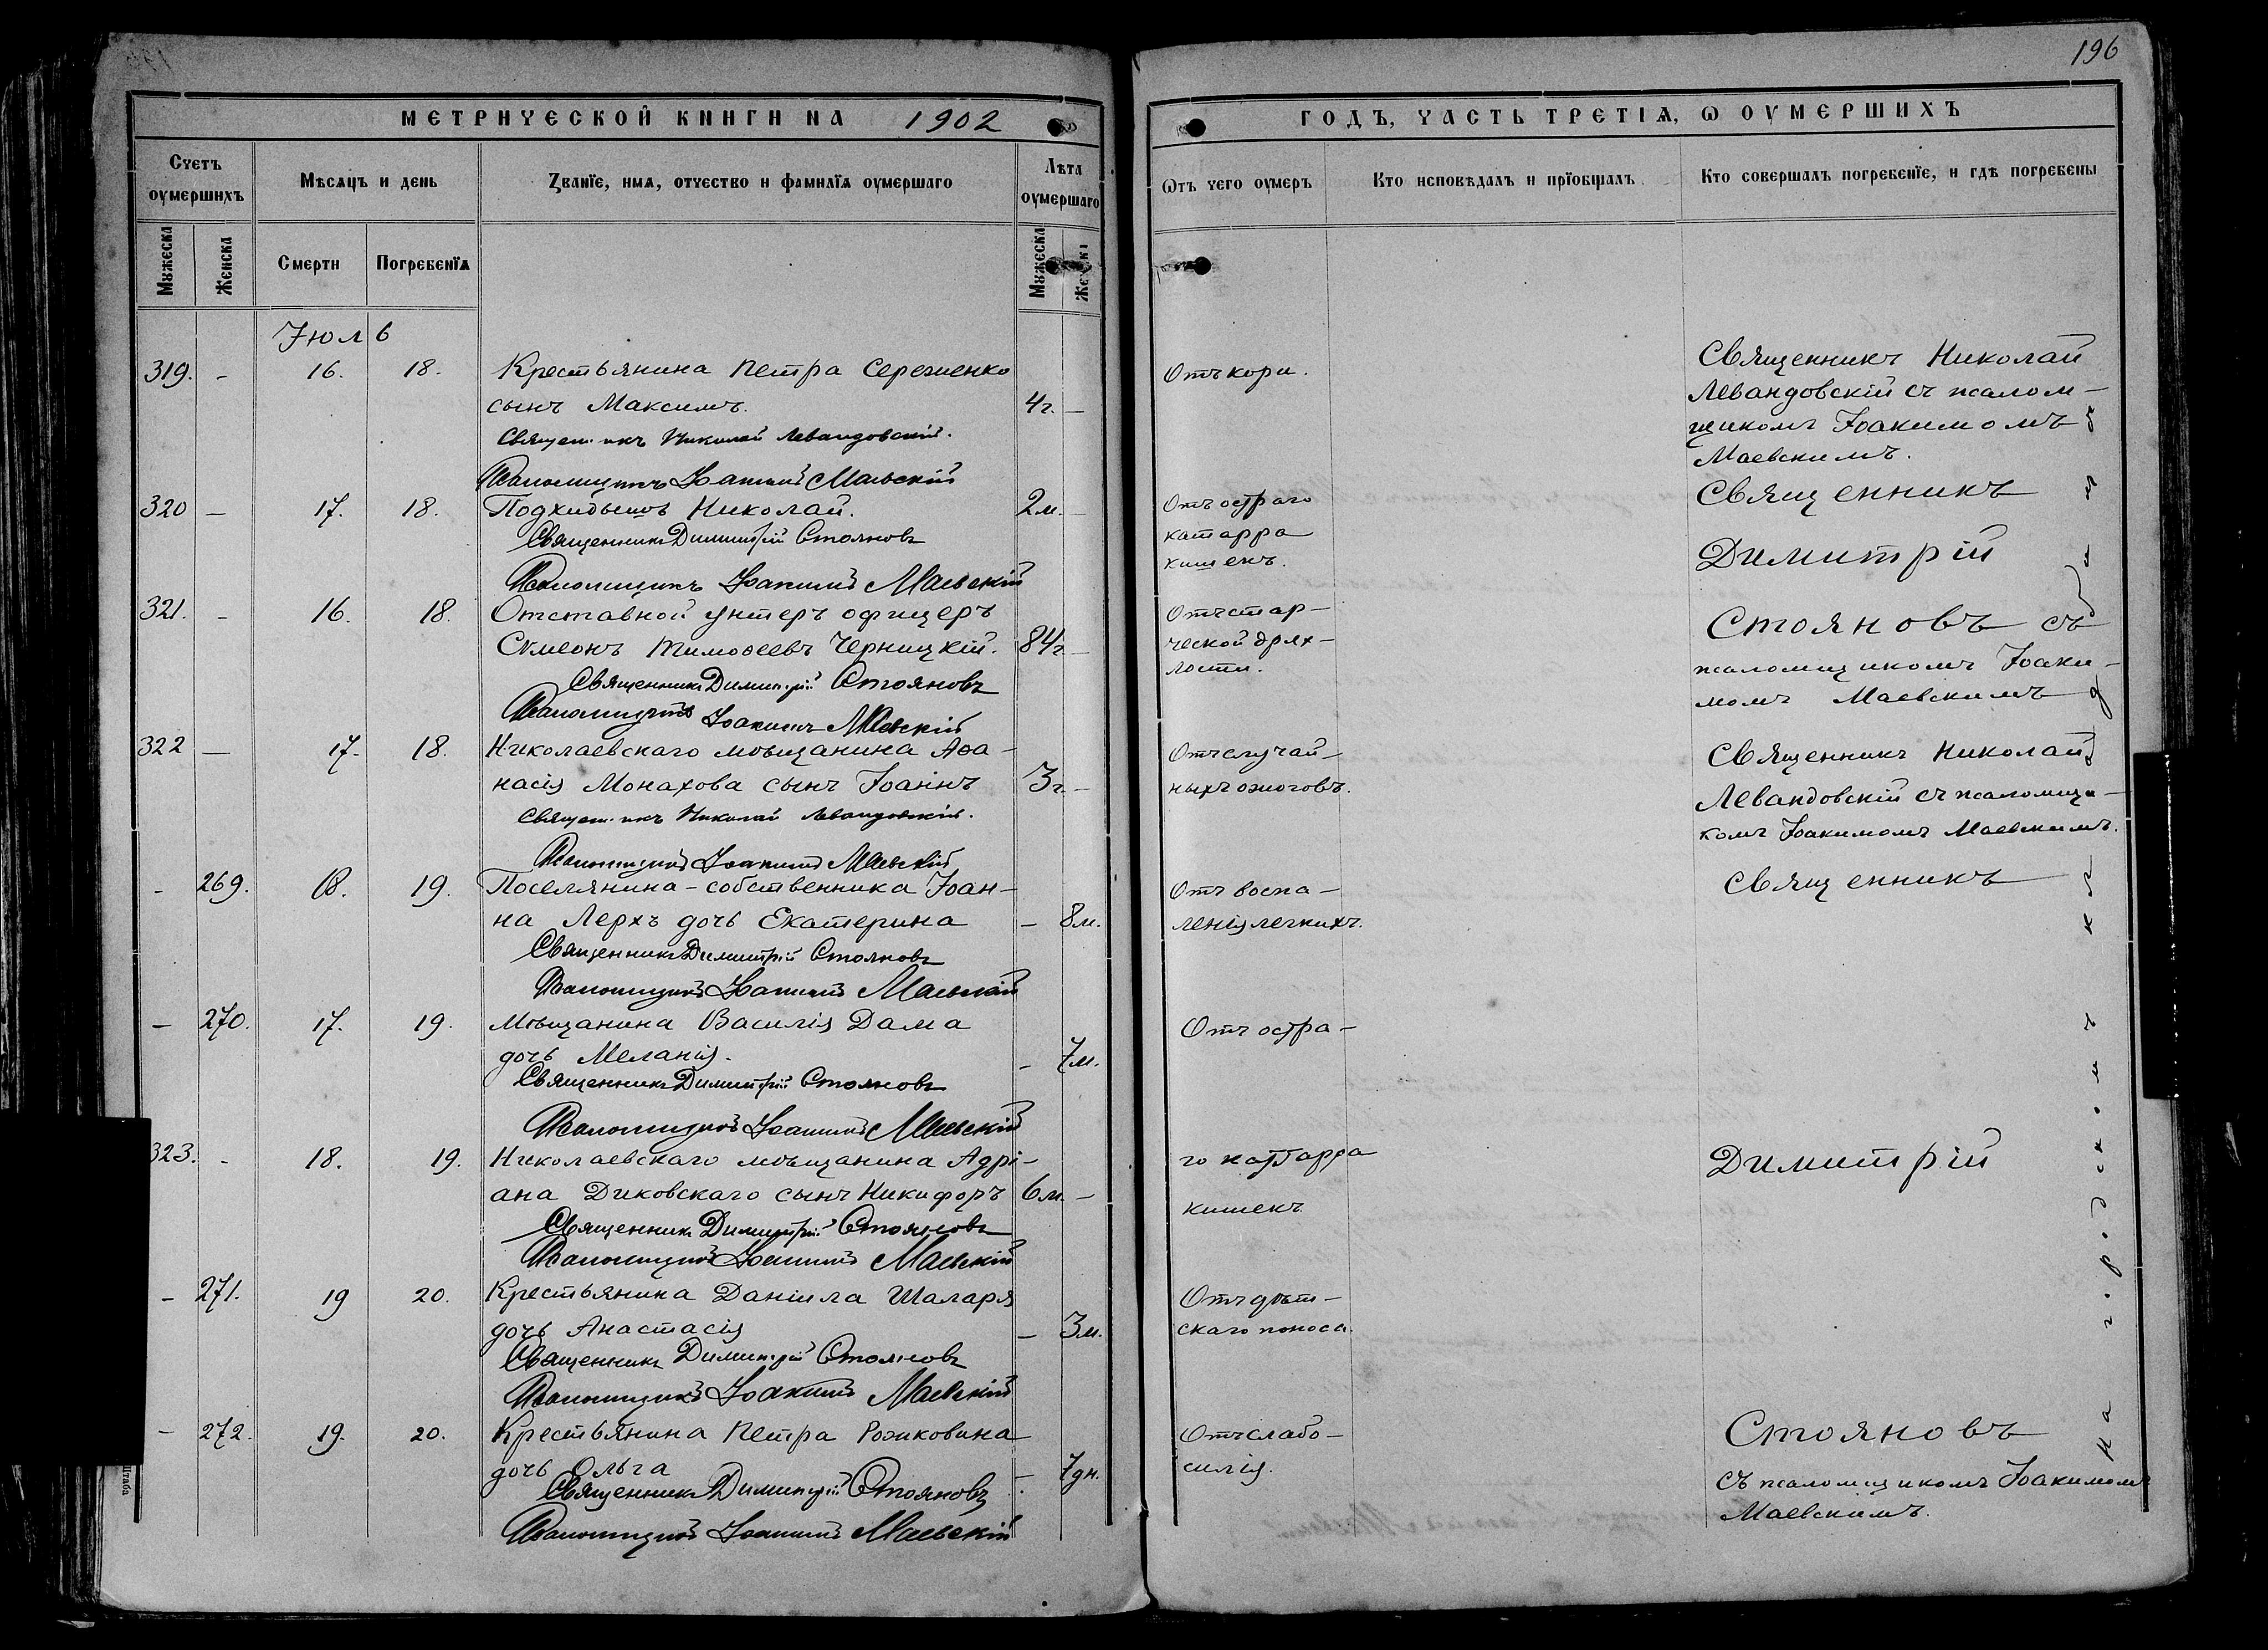 196
МЕТРИЧЕСКОЙ КНИГИ НА 1902
ГОДЪ, ЧАСТЬ ТРЕТІѦ, Ѡ ОУМЕРШИХЪ
Счетъ оумершихъ
Мѣсяцъ и день
Званїе, имѧ, отчество и фамилїѧ оумершаго
Лѣта оумершаго
Ѿтъ чего оумеръ
Кто исповѣдалъ и прїобщалъ
Кто совершалъ погребенїе, и гдѣ погребены
Мꙋжеска
Женска
Смерти
Погребенїѧ
Мꙋжеска
Женска
Іюль
319. - 16. 18. Крестьянина Петра Сергиенко
сынъ Максимъ. 4г. -
Священникъ Николай Левандовскій.
Псаломщикъ Іоакимъ Маевскій
Отъ кори.
Священникъ Николай
Левандовскій съ псалом-
щикомъ Іоакимомъ
Маевскимъ.
320 - 17. 18. Подкидышъ Николай. 2м. -
Священникъ Димитрій Стояновъ
Псаломщикъ Іоакимъ Маевскій
Отъ остраго
катарра
кишекъ.
Священникъ
Димитрій
321. - 16. 18. Отставной унтеръ офицеръ
Сѵмеонъ Тимоѳеевъ Черницкій. 84г -
Священникъ Димитрій Стояновъ
Псаломщикъ Іоакимъ Маевскій
Отъ стар-
ческой дрях-
лости.
Стояновъ съ
псаломщикомъ Іоаки-
момъ Маевскимъ
322 - 17. 18. Николаевскаго мѣщанина Аѳа-
насія Монахова сынъ Іоаннъ 3г. -
Священникъ Николай Левандовскій.
Псаломщикъ Іоакимъ Маевскій
Отъ случай-
ныхъ ожоговъ.
Священникъ Николай
Левандовскій съ псаломщи-
комъ Іоакимомъ Маевскимъ.
- 269. 18. 19. Поселянина-собственника Іоан-
на Лерхъ дочь Екатерина - 8м.
Священникъ Димитрій Стояновъ
Псаломщикъ Іоакимъ Маевскій
Отъ воспа-
ленія легкихъ.
Священникъ
- 270. 17. 19. Мѣщанина Василія Дама
дочь Меланія. - 7м.
Священникъ Димитрій Стояновъ
Псаломщикъ Іоакимъ Маевскій
Отъ остра-
323. - 18. 19. Николаевскаго мѣщанина Адрі-
ана Диковскаго сынъ Никифоръ 6м. -
Священникъ Димитрій Стояновъ
Псаломщикъ Іоакимъ Маевскій
го катарра
кишекъ
Димитрій
- 271. 19 20. Крестьянина Даніила Шаларя
дочь Анастасія - 3м.
Священникъ Димитрій Стояновъ
Псаломщикъ Іоакимъ Маевскій
Отъ дѣт-
скаго поноса.
- 272. 19. 20. Крестьянина Петра Рожковина
дочь Ольга - 7дн.
Священникъ Димитрій Стояновъ
Псаломщикъ Іоакимъ Маевскій
Отъ слабо-
силія.
Стояновъ
съ псаломщикомъ Іоакимомъ
Маевскимъ.
На городскомъ кл
Штаба